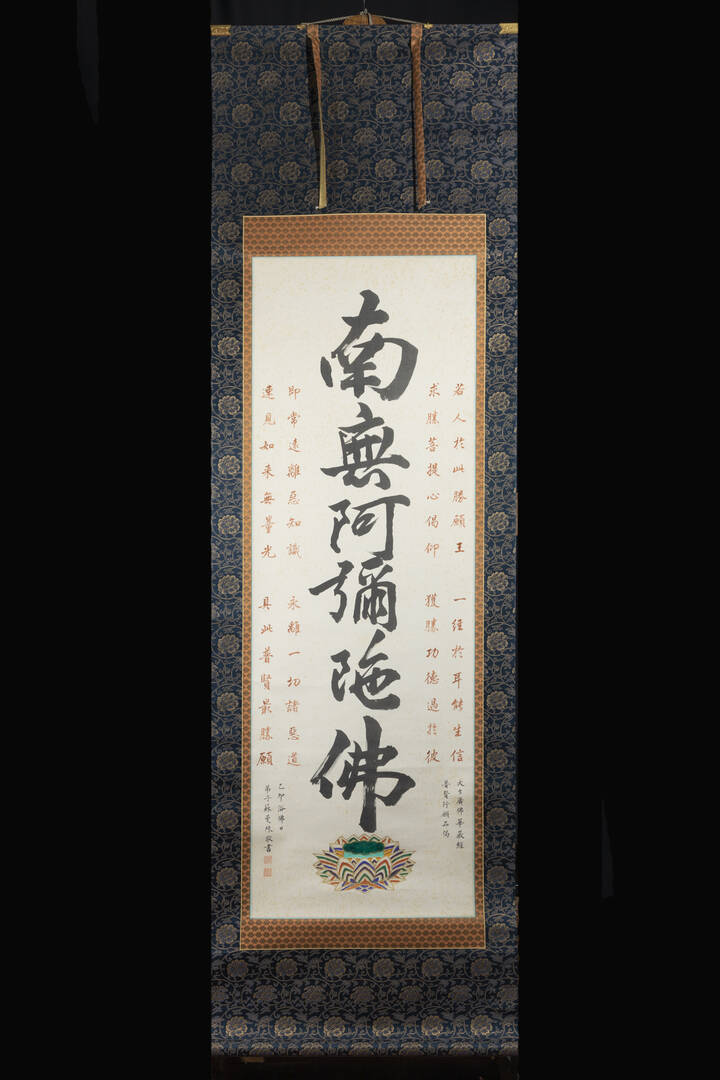 若人於此勝願王 一經於耳能生信
求勝菩提心偈仰 獲勝功德過於彼
大方廣佛華嚴經
普賢行願品偈
南無阿彌陀佛
即常遠離惡知識 永離一切諸惡道
速見如來無量光 具此普賢最勝願
己卯浴佛日
弟子蘇敬書